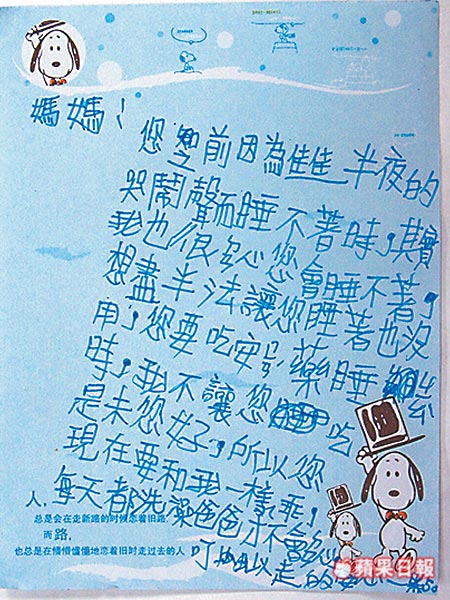 媽媽！
您之前因為佳佳半夜的
哭鬧聲而睡不著時，其實
我也很多心您會睡不著，
想盡半法讓您睡著也沒
用，您要吃安景藥睡
時，我不讓您吃
是未您好，所以您
現在要和我一樣乖，
每天都洗澡爸爸才不會
可以走
总是会在走新路的时候恋着旧路.
人，而路，
也总是在懵懵懂懂地恋着旧时走过去的人
蘋果日報